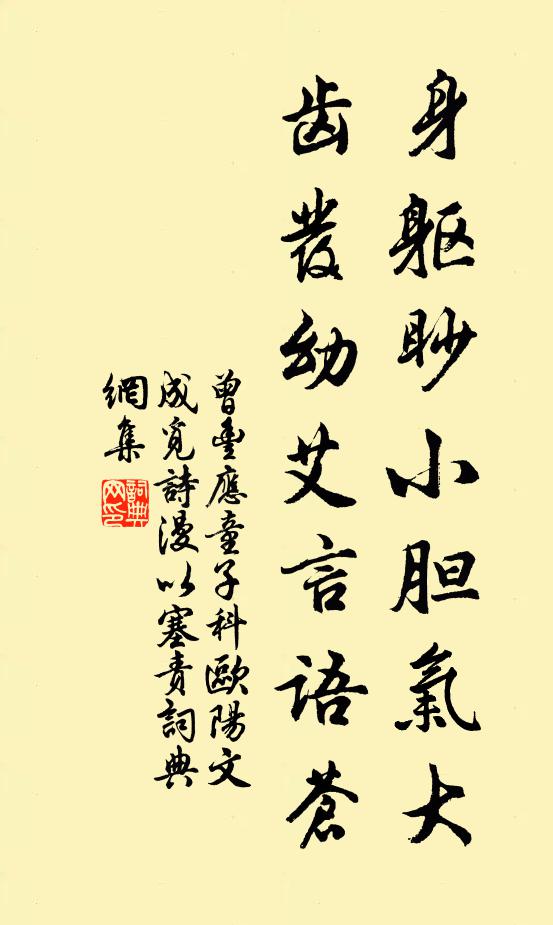 身躯眇小胆氣大
齿发幼艾言语蒼
曾豊應童子科歐陽文
成覓詩漫以塞責詞典
網集
詞典
网印